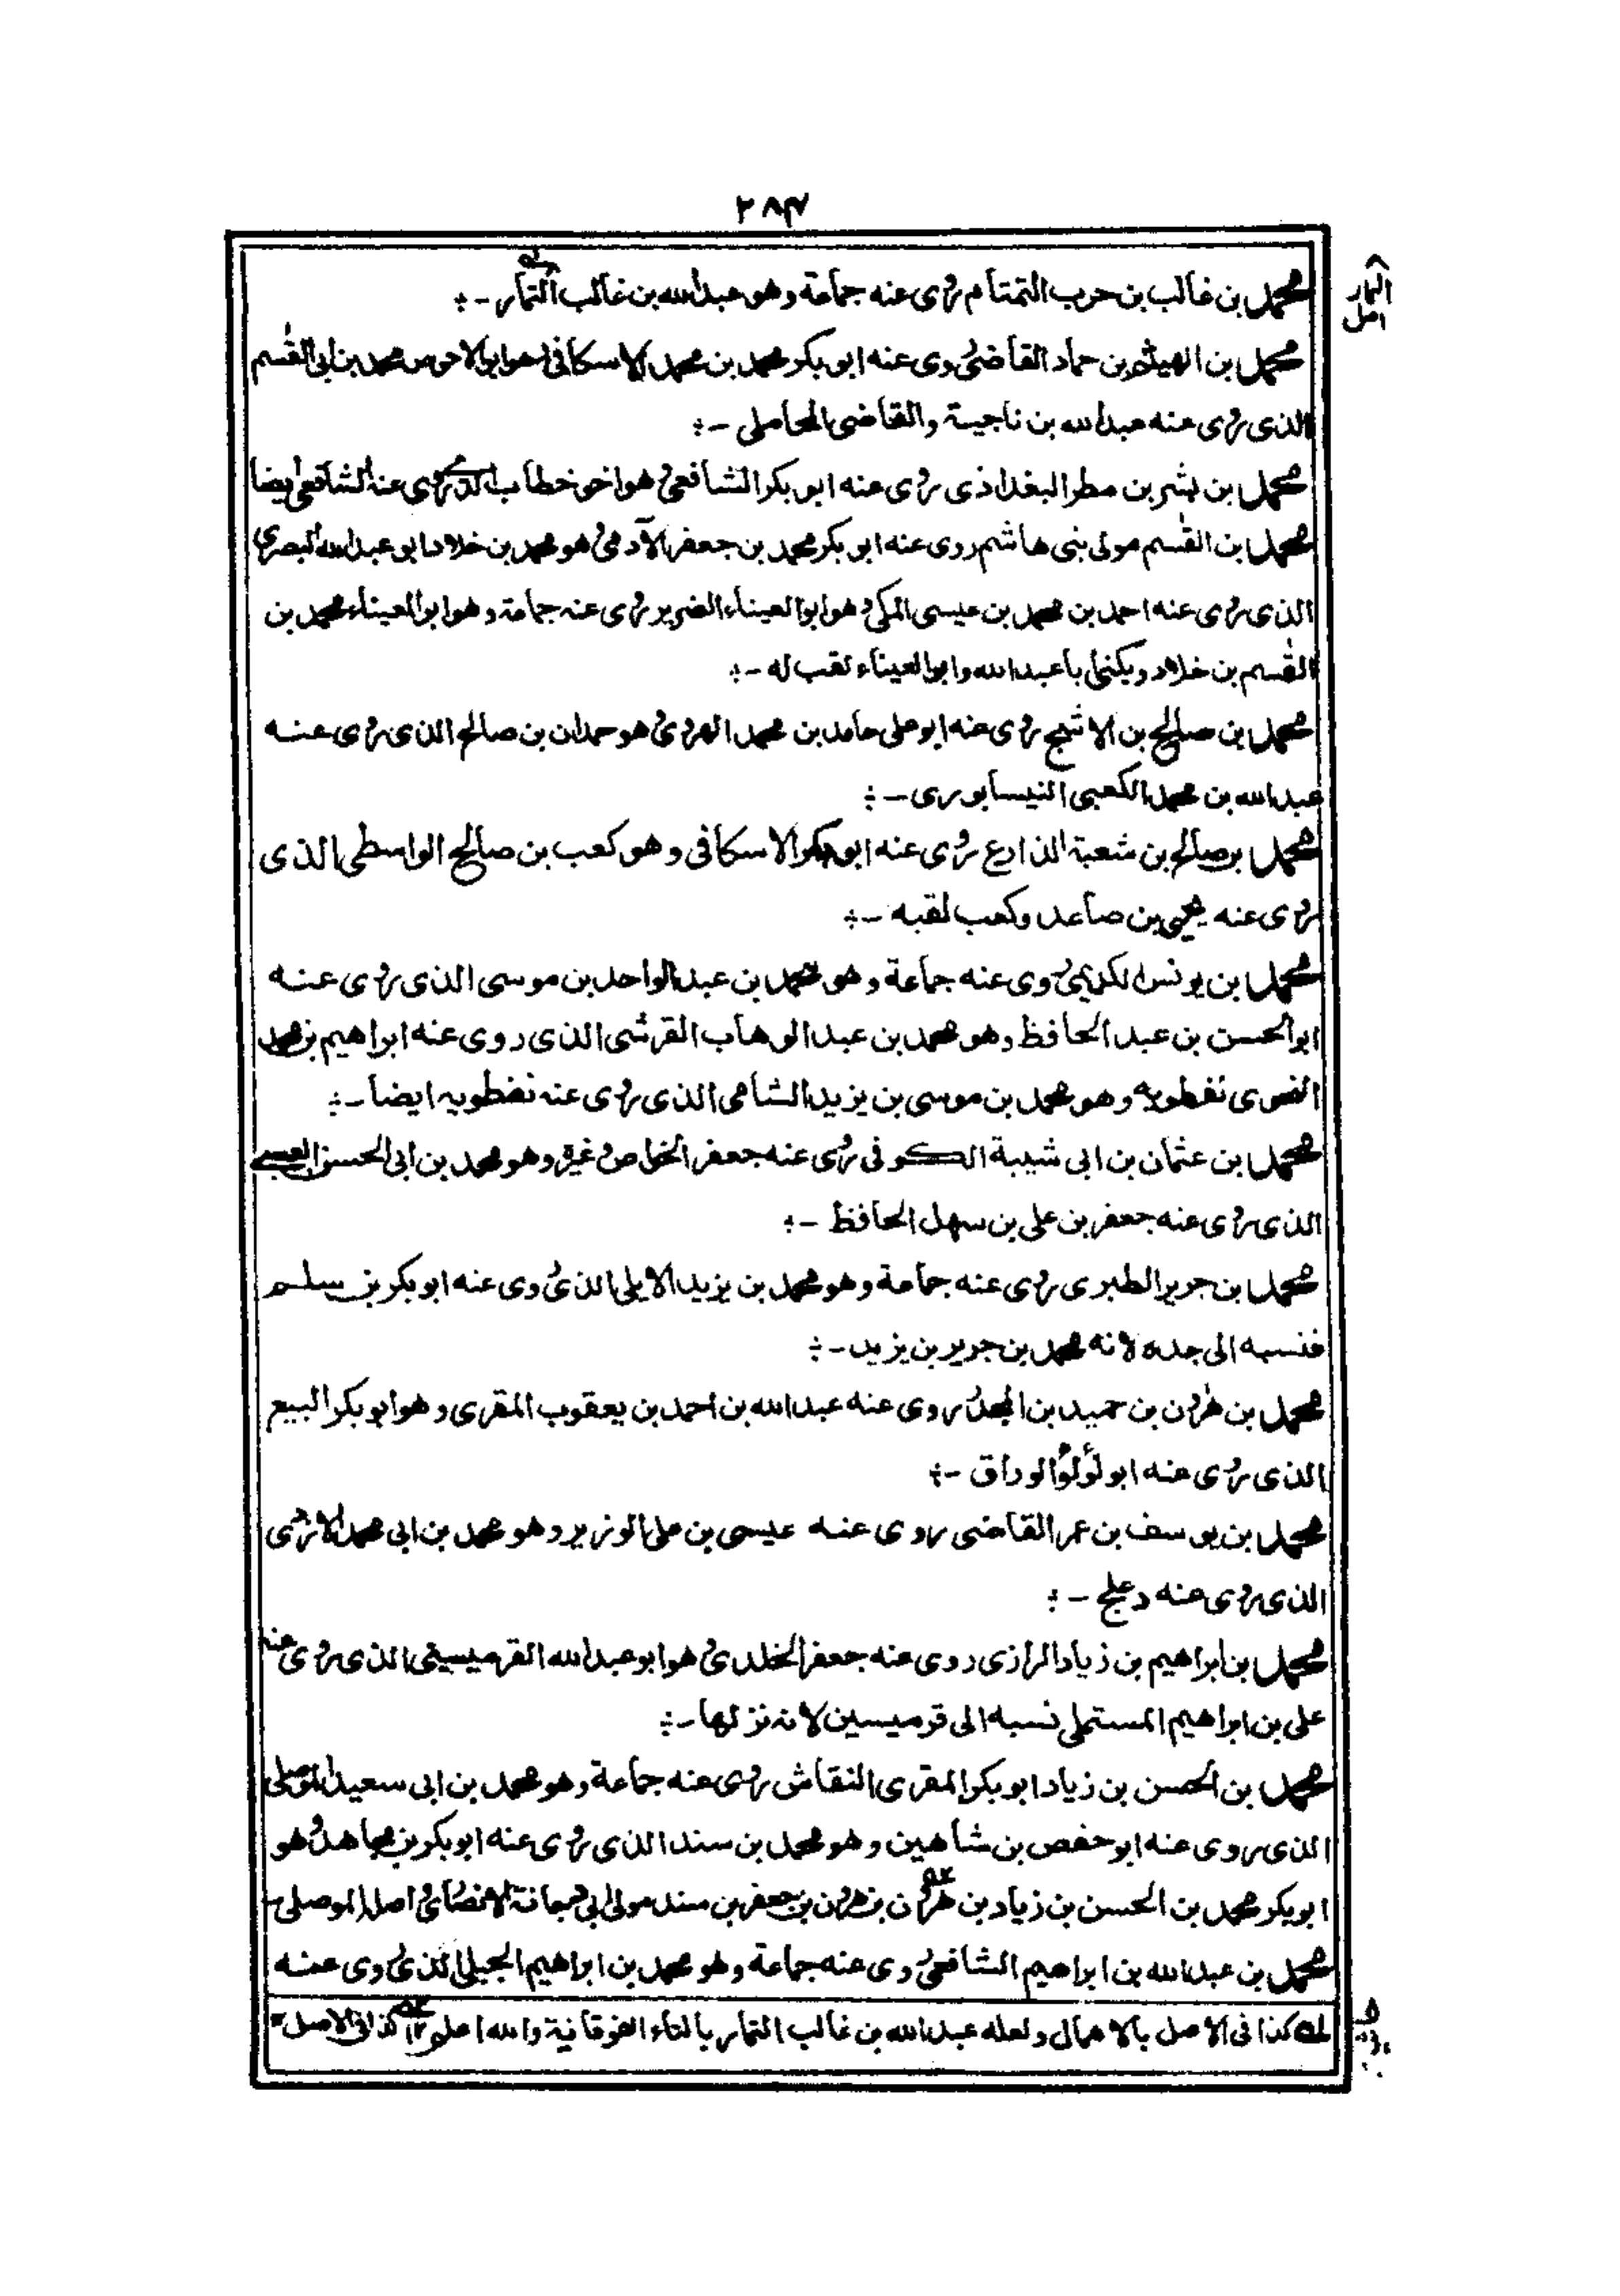 ۲۸۴
محمد بن غالب بن حرب التمتام روى عنه جماعة وهو عبدالله بن غالب التمار -:
محمد بن الهيثم بن حماد القاضى روى عنه ابو بكر محمد بن محمد الاسكافى وهو ابو الاحوص محمد بن ابى القٰسم
الذى روى عنه عبدالله بن ناجية والقاضى المحاملى -:
محمد بن بشر بن مطر البغداذى روى عنه ابو بكر الشافعى وهو اخو خطاب الذى روى عنه الشافعى ايضا
محمد بن القٰسم مولى بنى هاشم روى عنه ابو بكر محمد بن جعفر الآدمى وهو محمد بن خلاد ابو عبدالله البصرى
الذى روى عنه احمد بن محمد بن عيسى المكى وهو ابو العيناء الضرير روى عنه جماعة وهو ابو العيناء محمد بن
القٰسم بن خلاد ويكنى با عبدالله وابو العيناء لقب له -:
محمد بن صالح بن الاشج روى عنه ابو على حامد بن محمد الهروى وهو حمدان بن صالح الذى روى عنه
عبدالله بن محمد الكعبى النيسابورى -:
محمد بن صالح بن شعبة الذارع روى عنه ابو بكر الاسكافى وهو كعب بن صالح الواسطى الذى
روى عنه يحيى بن صاعد وكعب لقبه -:
محمد بن يونس الكديمى روى عنه جماعة وهو محمد بن عبدالواحد بن موسى الذى روى عنه
ابو الحسن بن عبد الحافظ وهو محمد بن عبد الوهاب القرشى الذى روى عنه ابراهيم بن محمد
النحوى نفطويه وهو محمد بن موسى بن يزيد الشامى الذى روى عنه نفطويه ايضا -:
محمد بن عثمان بن ابى شيبة الكوفى روى عنه جعفر الخواص وغيره وهو محمد بن ابى الحسن العبسى
الذى روى عنه جعفر بن على بن سهل الحافظ -:
محمد بن جرير الطبرى روى عنه جماعة وهو محمد بن يزيد الاملى الذى روى عنه ابو بكر بن سلم
فنسبه الى جده لانه محمد بن جرير بن يزيد -:
محمد بن هٰرون بن حميد بن المجدر روى عنه عبدالله بن احمد بن يعقوب المقرى وهو ابو بكر البيع
الذى روى عنه ابو لؤلؤ الوراق -:
محمد بن يوسف بن عمر القاضى روى عنه عيسى بن على الوزير وهو محمد بن ابى محمد الازدى
الذى روى عنه دعلج -:
محمد بن ابراهيم بن زياد الرازى روى عنه جعفر الخلدى وهو ابو عبدالله القرميسينى الذى روى عنه
على بن ابراهيم المستملى نسبه الى قرميسين لانه نزلها -:
محمد بن الحسن بن زياد ابو بكر المقرى النقاش روى عنه جماعة وهو محمد بن ابى سعيد الموصلى
الذى روى عنه ابو حفص بن شاهين وهو محمد بن سند الذى روى عنه ابو بكر بن مجاهد وهو
ابو بكر محمد بن الحسن بن زياد بن هٰرون بن هٰرون بن جعفر بن سند مولى ابى دجانة الانصارى اصله الموصلى -
محمد بن عبدالله بن ابراهيم الشافعى روى عنه جماعة وهو محمد بن ابراهيم الجبلى الذى روى عنه
له كذا فى الاصل بالاهمال ولعله عبدالله بن غالب التمار بالتاء الفوقانية والله اعلم ۱۲ كذا فى الاصل